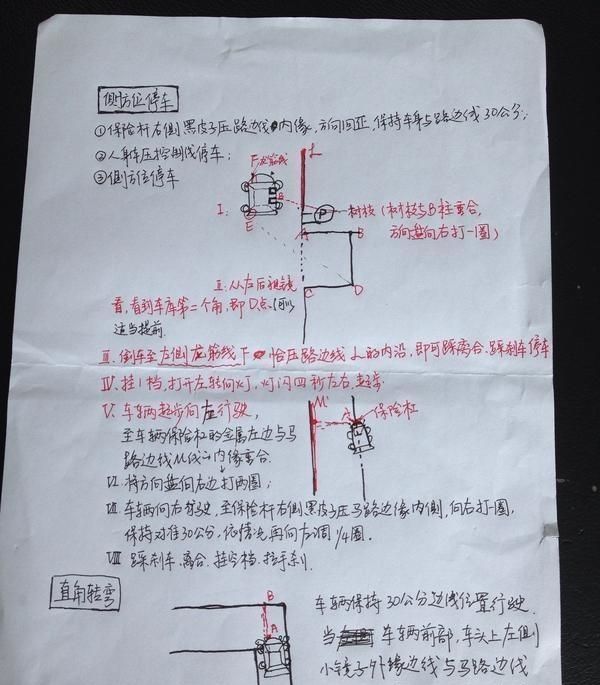 侧方位停车
①保险杆右侧黑皮子压路边线内缘，方向回正，保持车身与路边线30公分；
②人身体压控制线停车；
③侧方位停车
F龙筋线
L
I：
B
E
P
树枝（树枝与B柱重合，
方向盘向右打一圈）
A
B
II：从左后视镜
C
D
看，看到车库第二个角，即D点，(可以
适当提前.
III. 倒车至左侧龙筋线F恰压路边线L的内沿，即可踩离合、踩刹车停车
IV. 挂1档，打开左转向灯，灯闪四秒左右，起步
V. 车辆起步向左行驶，
M
A
保险杠
至车辆保险杠的金属左边与马
路边线M线之内缘重合.
VI 将方向盘向右边打两圈；
VII 车辆向右驾驶，至保险杆右侧黑皮子压马路边缘内侧，向右打一圈，
保持对准30公分，依情况再向左调1/4圈.
VIII 踩刹车、离合、挂空档、拉手刹.
直角转弯
B
A
车辆保持30公分边线位置行驶.
当车辆前部，车头上左侧
小镜子外缘边线与马路边线